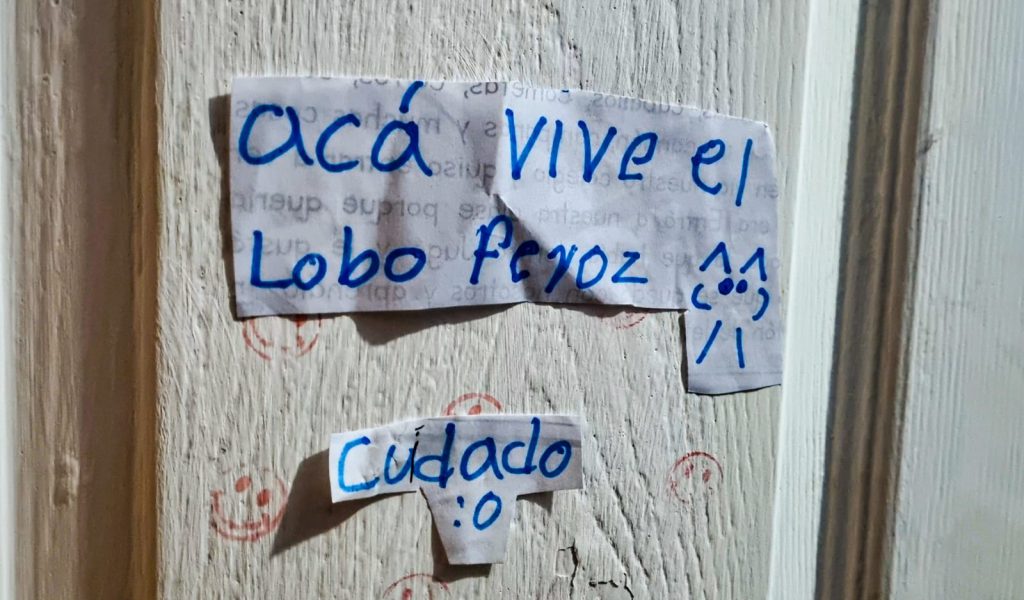 acá vive el
Lobo feroz ^^
(°°)
/ |
Cuidado
:o